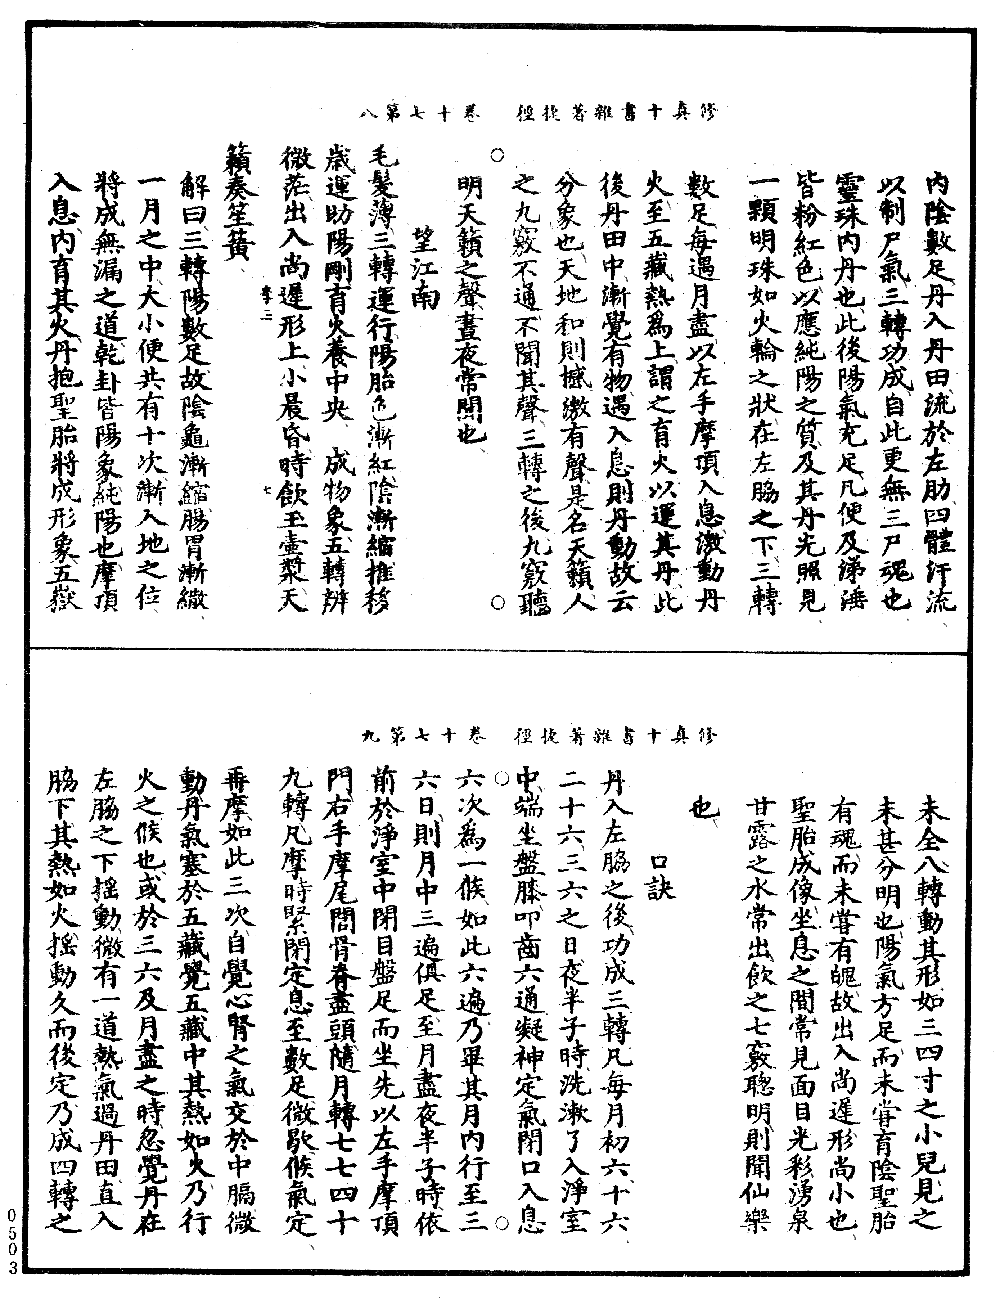 修真十書雜著捷徑　卷十七第八
內陰數足丹入丹田流於左肋四體汗流
以制尸氣三轉功成自此更無三尸魂也
靈珠內丹也此後陽氣充足凡便及涕唾
皆粉紅色以應純陽之質及其丹光照見
一顆明珠如火輪之狀在左脇之下三轉
數足每遇月盡以左手摩頂入息激動丹
火至五藏熱為上謂之育火以運其丹此
後丹田中漸覺有物遇入息則丹動故云
分象也天地和則撼激有聲是名天籟人
之九竅不通不聞其聲三轉之後九竅聽
明天籟之聲晝夜常聞也
望江南
毛髮薄三轉運行陽胎色漸紅陰漸縮推移
歲運助陽剛育火養中央　成物象五轉辨
微茫出入尚遲形上小晨昏時飲玉壺漿天
李三　七
籟奏笙簧
解曰三轉陽數足故陰龜漸縮腸胃漸緻
一月之中大小便共有十次漸入地之位
將成無漏之道乾卦皆陽象純陽也摩頂
入息內育其火丹抱聖胎將成形象五嶽
修真十書雜著捷徑　卷十七第九
未全八轉動其形如三四寸之小兒見之
未甚分明也陽氣方足而未嘗育陰聖胎
有魂而未嘗有魄故出入尚遲形尚小也
聖胎成像坐息之間常見面目光彩湧泉
甘露之水常出飲之七竅聰明則聞仙樂
也
口訣
丹入左脇之後功成三轉凡每月初六十六
二十六三六之日夜半子時洗漱了入淨室
中端坐盤膝叩齒六通凝神定氣閉口入息
六次為一候如此六遍乃畢其月內行至三
六日則月中三遍俱足至月盡夜半子時依
前於淨室中閉目盤足而坐先以左手摩頂
門右手摩尾閭骨脊盡頭隨月轉七七四十
九轉凡摩時緊閉定息至數足微歇候氣定
再摩如此三次自覺心腎之氣交於中膈微
動丹氣塞於五藏覺五藏中其熱如火乃行
火之候也或於三六及月盡之時忽覺丹在
左脇之下搖動微有一道熱氣過丹田直入
脇下其熱如火搖動久而後定乃成四轉之
0503